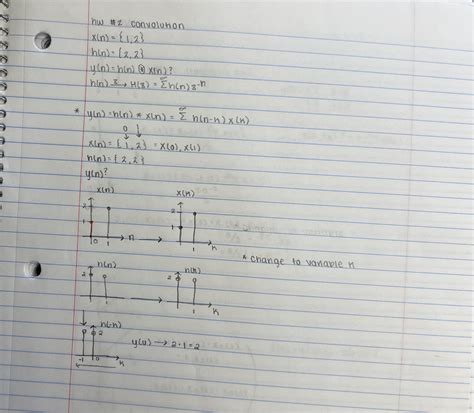 hw #2 convolution
x(n) = {1,2}
h(n) = {2,2}
y(n) = h(n) ⊛ x(n)?
h(n) → H(z) = Σ h(n) z⁻ⁿ
* y(n) = h(n) * x(n) = Σ h(n-k) x(k)
0 ↓
x(n) = {1,2} = x(0), x(1)
h(n) = {2,2}
y(n)?
x(n) x(k)
2 2
1 1
0 1 n → 1 k
* change to variable k
h(n) h(k)
2 2
1 → 1 k
h(-k)
2 y(0) → 2·1=2
-1 0 k